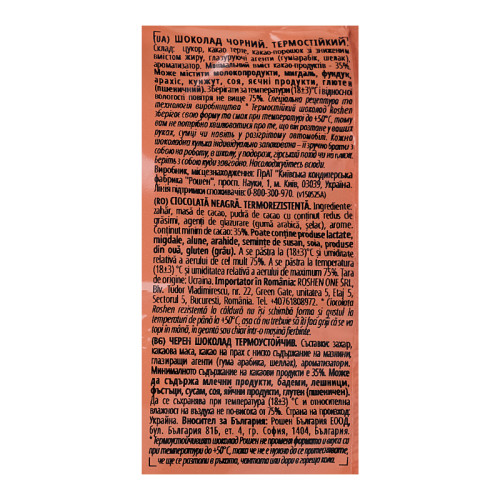 (UA) ШОКОЛАД ЧОРНИЙ. ТЕРМОСТІЙКИЙ.
Склад: цукор, какао терте, какао-порошок зі зниженим
вмістом жиру, глазуруючі агенти (гуміарабік, шелак),
ароматизатор. Мінімальний вміст какао-продуктів – 35%.
Може містити молокопродукти, мигдаль, фундук,
арахіс, кунжут, соя, яєчні продукти, глютен
(пшеничний). Зберігати за температури (18±3)°С і відносної
вологості повітря не вище 75%. Спеціальна рецептура та
технологія виробництва * Термостійкий шоколад Roshen
зберігає свою форму та смак при температурі до +50°С, тому
вам не потрібно хвилюватися про те, що він розтане у ваших
руках, сумці чи навіть у розігрітому автомобілі. Кожна
шоколадна кулька індивідуально запакована – її зручно брати з
собою на роботу, в школу, у подорож, гірський похід чи на пікнік.
Беріть з собою куди завгодно. Насолоджуйтесь де завгодно.
Виробник, місцезнаходження: ПрАТ "Київська кондитерська
фабрика "Рошен", просп. Науки, 1, м. Київ, 03039, Україна.
Лінія підтримки споживачів 0-800-300-970. (v150525A)
(RO) CIOCOLATĂ NEAGRĂ. TERMOREZISTENTĂ. Ingrediente:
zahăr, masă de cacao, pudră de cacao cu conținut redus de
grăsimi, agenți de glazurare (gumă arabică, șelac), arome.
Conținut minim de cacao: 35%. Poate conține produse lactate,
migdale, alune, arahide, semințe de susan, soia, produse
din ouă, gluten (grâu). A se păstra la (18±3)°C și umiditate
relativă a aerului de cel mult 75%. A se păstra la temperatura
(18±3)°C și umiditatea relativă a aerului de maximum 75%. Țara
de origine: Ucraina. Importator în România: ROSHEN ONE SRL,
Blv. Tudor Vladimirescu, nr. 22, Green Gate, unitatea 5, Etaj 5,
Sectorul 5, Bucuresti, România, Tel. +40761808972. * Ciocolata
Roshen rezistentă la căldură nu își schimbă forma și gustul la
temperaturi de până la +50°C, așa că nu trebuie să îți faci griji că se va
topi în mână, în geantă sau chiar într-o mașină fierbinte.
(БG) ЧЕРЕН ШОКОЛАД ТЕРМОУСТОЙЧИВ. Съставки: захар,
какаова маса, какао на прах с ниско съдържание на мазнини,
глазиращи агенти (гума арабика, шеллак), ароматизатори.
Минималното съдържание на какаови продукти е 35%. Може
да съдържа млечни продукти, бадеми, лешници,
фъстъци, сусам, соя, яйчни продукти, глутен (пшеничен).
Да се съхранява при температура (18±3)°С и относителна
влажност на въздуха не по-висока от 75%. Страна на произход:
Украйна. Вносител за България: Рошен България ЕООД,
бул. България 81Б, ет. 4, гр. София, 1404, България.
* Термоустойчивият шоколад Рошен не променя формата и вкуса си
при температури до +50°С, така че не е нужно да се притеснявате,
че ще се разтопи в ръката, чантата или дори в гореща кола.